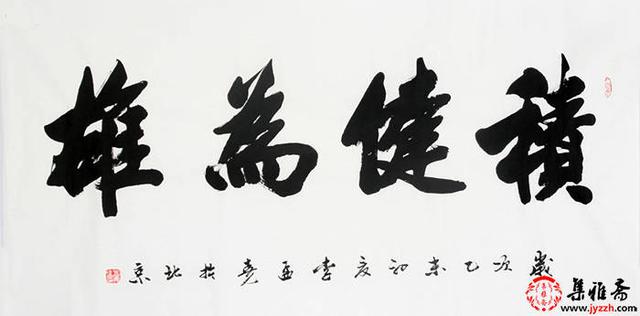 積健為雄
歲次乙未初夏李孟尧於北京
集雅斋
www.jyzzh.com